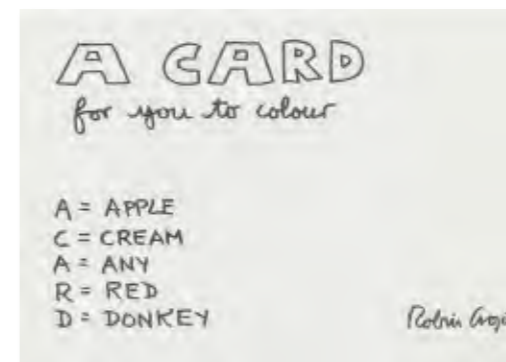 A CARD
for you to colour
A = APPLE
C = CREAM
A = ANY
R = RED
D = DONKEY
Robin